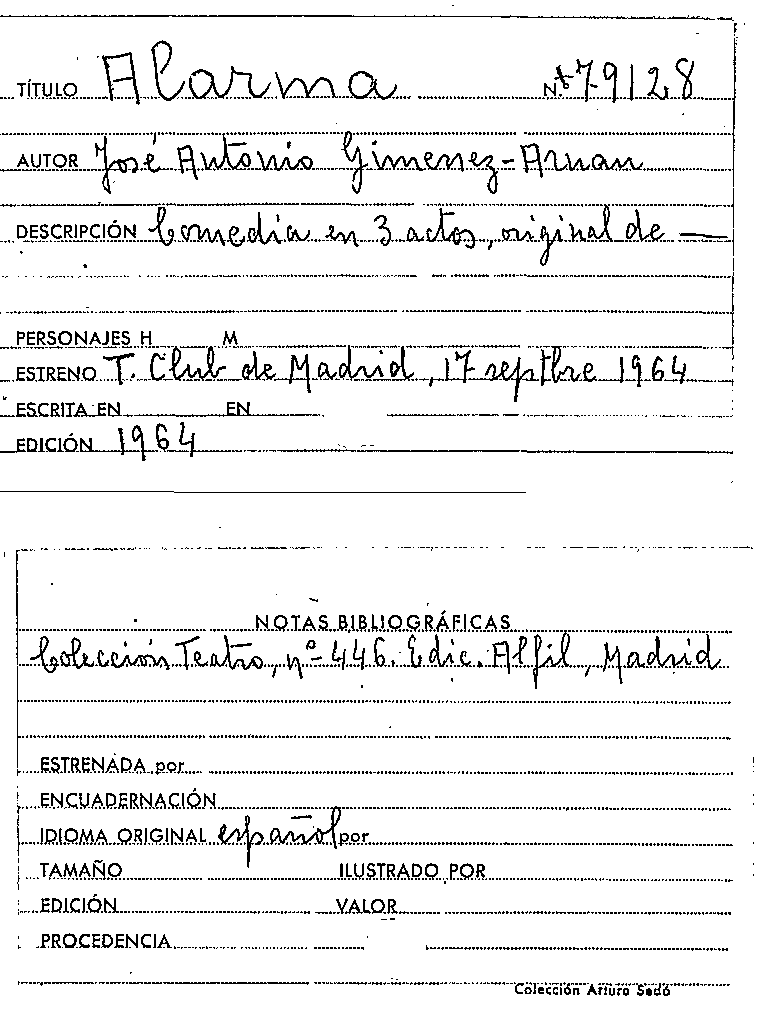 TÍTULO Alarma Nº 79128
AUTOR José Antonio Gimenez-Arnan
DESCRIPCIÓN Comedia en 3 actos, original de —
PERSONAJES H M
ESTRENO T. Club de Madrid, 17 septbre 1964
ESCRITA EN EN
EDICIÓN 1964
NOTAS BIBLIOGRÁFICAS
Colección Teatro, nº 446. Edic. Alfil, Madrid
ESTRENADA por
ENCUADERNACIÓN
IDIOMA ORIGINAL español por
TAMAÑO ILUSTRADO POR
EDICIÓN VALOR
PROCEDENCIA
Colección Arturo Sedó